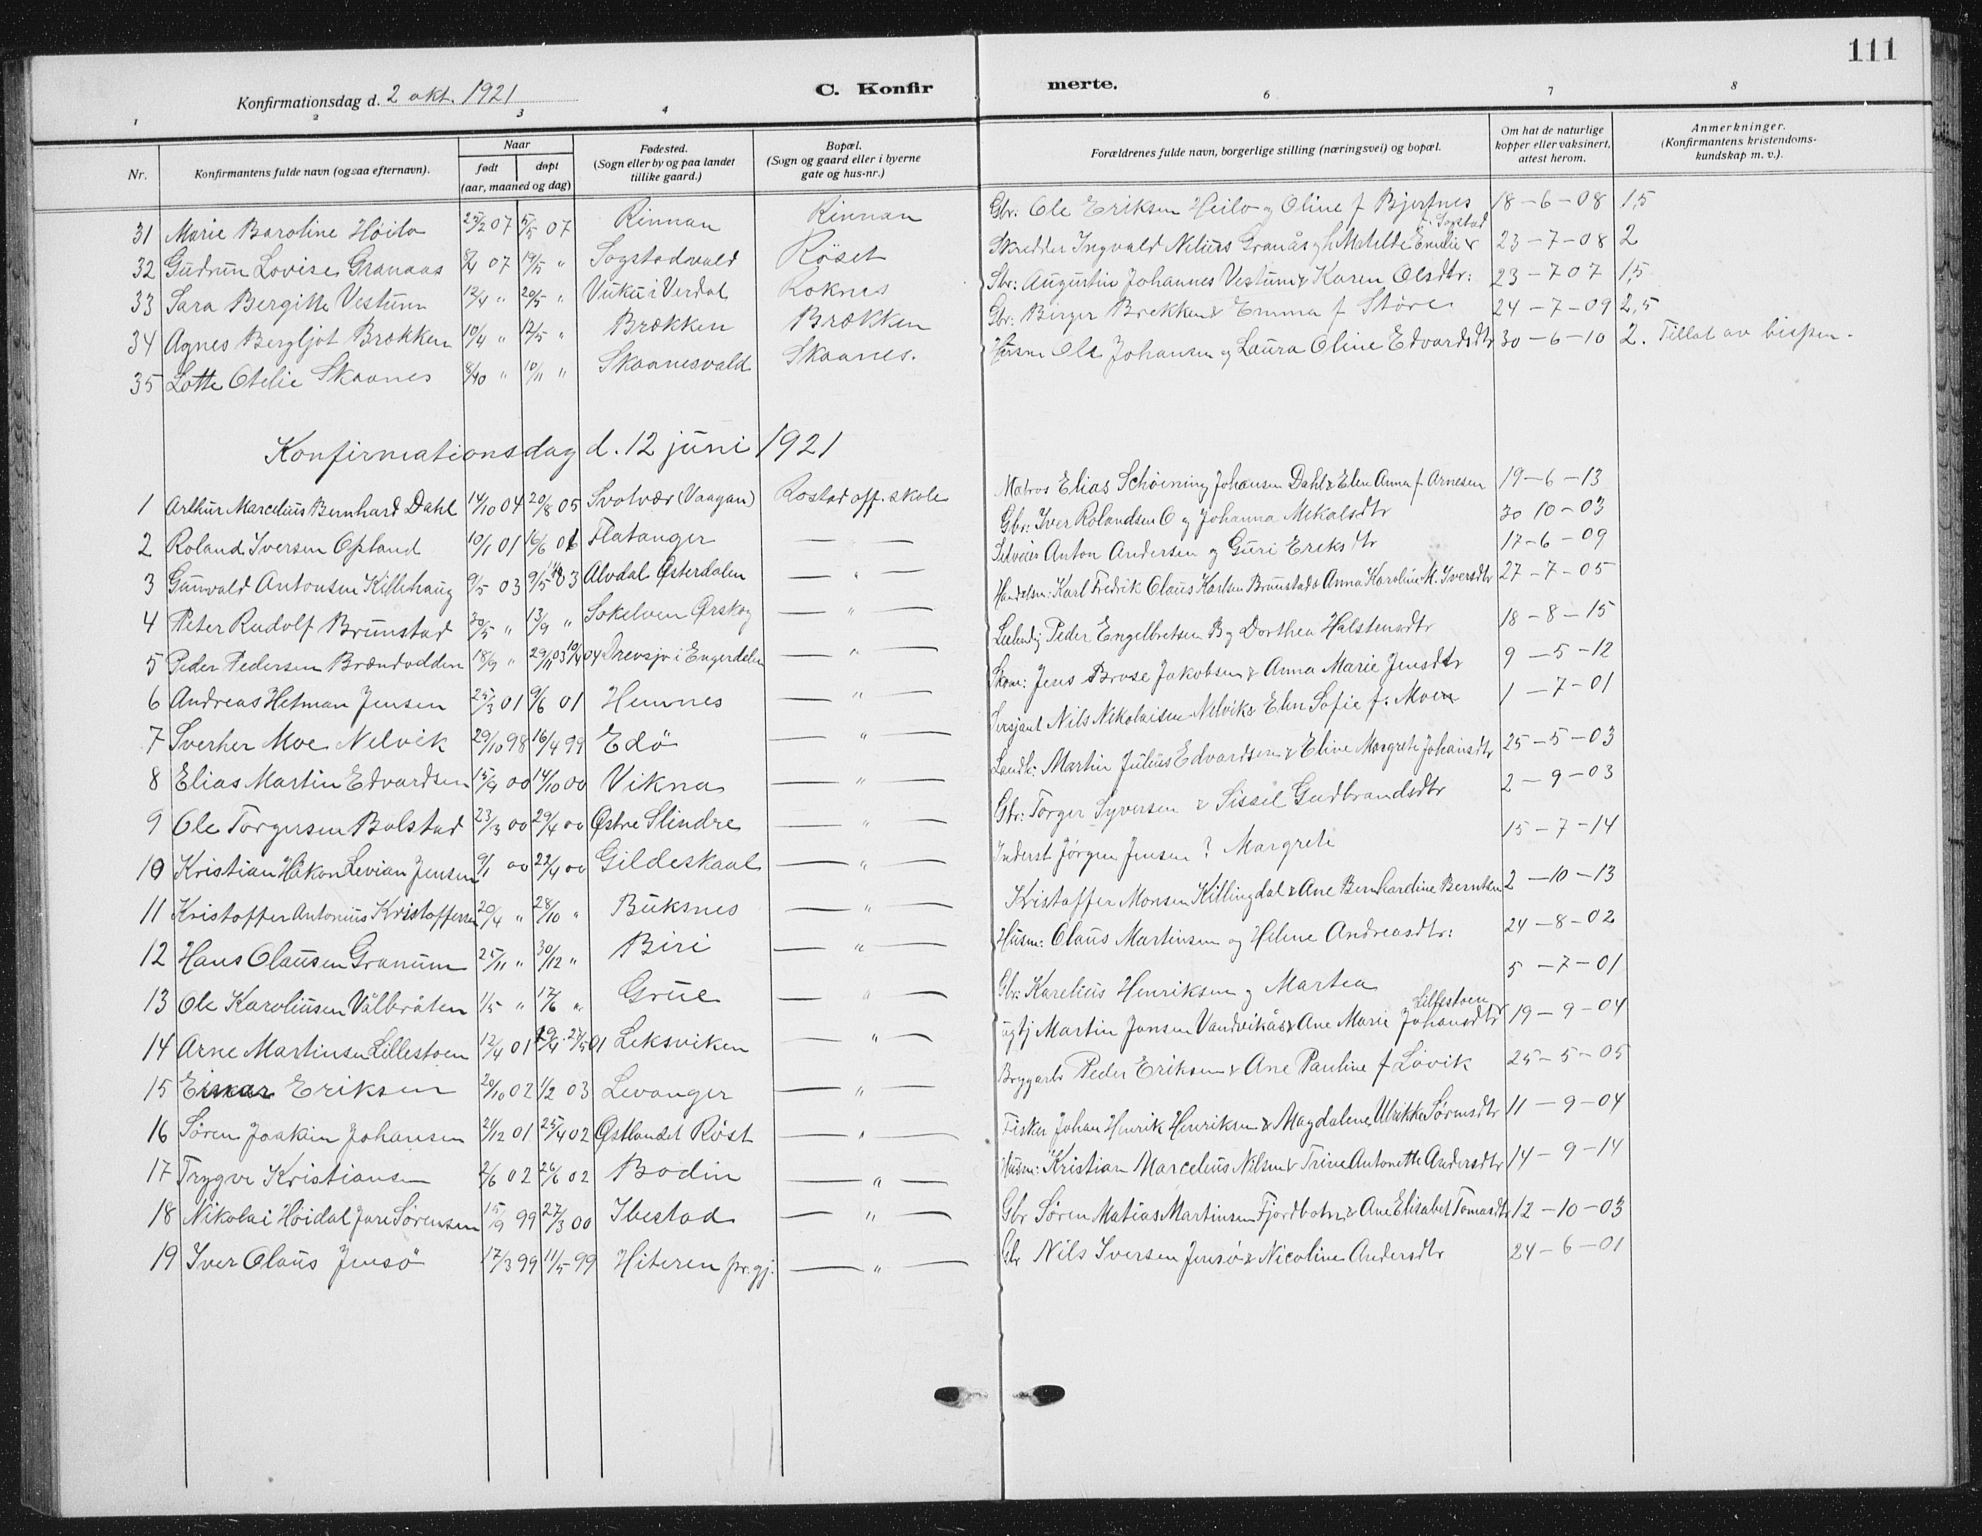 111
Konfirmationsdag d. 2 okt. 1921 C. Konfir merte.
1 2 3 4 6 7 8
Nr. Konfirmantens fulde navn (ogsaa efternavn). Naar født døpt (aar, maaned og dag) Fødested. (Sogn eller by og paa landet tillike gaard.) Bopæl. (Sogn og gaard eller i byerne gate og hus-nr.) Forældrenes fulde navn, borgerlige stilling (næringsvei) og bopæl. Om hat de naturlige kopper eller vaksinert, attest herom. Anmerkninger. (Konfirmantens kristendomskundskap m. v.).
31 Marie Baroline Høilo 25/2 07 5/5 07 Rinnan Rinnan Gbr: Ole Eriksen Heilo og Oline f Bjertnes 18-6-08 1,5
32 Gudrun Lovise Granaas 8/4 07 19/5 " Sogstadvald Røset Skredder Ingvald Nelius Granås og Matilde Emilie f. Sogstad 23-7-08 2
33 Sara Bergitte Vestum 12/4 " 20/5 " Vuku i Verdal Roknes Gbr: Augustin Johannes Vestum & Karen Olsdtr: 23-7 07 1,5
34 Agnes Bergljot Brækken 10/4 " 12/5 " Brækken Brækken Gbr: Birger Brekken & Emma f Støre 24-7-09 2,5
35 Lotte Otelie Skaanes 8/10 " 10/11 " Skaanesvald Skaanes. Husm Ole Johansen og Laura Oline Edvardsdtr 30-6-10 2. Tillat av bispen.
Konfirmationsdag d. 12 juni 1921
1 Arthur Marcelius Bernhard Dahl 14/10 04 20/8 05 Svolvær (Vaagan) Rostad off. skole Matros Elias Schøening Johansen Dahl & Elen Anna f. Arnesen 19-6-13
2 Roland Iversen Opland 10/1 01 16/6 01 Flatanger — " — Gbr: Iver Rolandsen O og Johanna Mikalsdtr 30 10-03
3 Gunvald Antonsen Killihaug 9/5 03 9/5 03 Alvdal Østerdalen — " — Selveier Anton Andersen og Guri Eriksdtr 17-6-09
4 Peter Rudolf Brunstad 30/5 " 13/9 " Sokelven Ørskog — " — Handelsm: Karl Fredrik Claus Karlsen Brunstad & Anna Karoline M. Iversdtr 27-7-05
5 Peder Pedersen Brændvodden 18/9 " 29/11 03 10/4 04 Drevsjø i Engerdalen — " — Leilendig Peder Engelbretsen B og Dorthea Halstensdtr 18-8-15
6 Andreas Hetman Jensen 25/3 01 9/6 01 Hemnes — " — Skom: Jens Brose Jakobsen & Anna Marie Jensdtr 9-5-12
7 Sverker Moe Nelvik 29/10 98 16/4 99 Edö — " — Sersjant Nils Nikolaisen Nelvik & Elen Sofie f. Moen 1-7-01
8 Elias Martin Edvardsen 15/9 00 14/10 00 Vikna — " — Landh: Martin Julius Edvardsen & Eline Margrete Johansdtr 25-5-03
9 Ole Torgersen Bolstad 23/3 00 29/4 00 Østre Slindre — " — Gbr: Torger Syversen & Sissil Gudbrandsdtr 2-9-03
10 Kristian Håkon Levian Jensen 9/1 00 22/4 00 Gildeskaal — " — Inderst Jörgen Jensen ? Margrete 15-7-14
11 Kristoffer Antonius Kristoffersen 20/4 " 28/10 " Buksnes — " — Kristoffer Monsen Killingdal & Ane Bernhardine Berntsen 2-10-13
12 Hans Olausen Granum 25/11 " 30/12 " Biri — " — Husm: Olaus Martinsen og Helene Andreasdtr: 24-8-02
13 Ole Karoliusen Vålbråten 1/5 " 17/6 " Grue — " — Gbr: Karelius Henriksen og Martea 5-7-01
14 Arne Martinsen Lillestoen 12/4 01 29/4 27/5 01 Leksviken — " — ugtj Martin Jansen Vandvikås & Ane Marie Johansdtr Lillestoen 19-9-04
15 Einar Eriksen 20/10 02 1/2 03 Levanger — " — Bryggarb Peder Eriksen & Ane Pauline f Løvik 25-5-05
16 Søren Joakim Johansen 21/12 01 25/4 02 Østlandet Røst — " — Fisker Johan Henrik Henriksen & Magdalene Ulrikke Sørensdtr 11-9-04
17 Trygve Kristiansen 2/6 02 26/6 02 Bodin — " — Husm: Kristian Marcelius Nilsen & Trine Antonette Andersdtr 14-9-14
18 Nikolai Høidal Jare Sørensen 15/9 99 27/3 00 Ibestad — " — Gbr Søren Matias Martinsen Fjordbotn & Ane Elisabet Tomasdtr 12-10-03
19 Iver Olaus Jensö 17/3 99 11/5 99 Hiteren pr.gj. — " — Gbr Nils Iversen Jensø & Nicoline Andersdtr 24-6-01